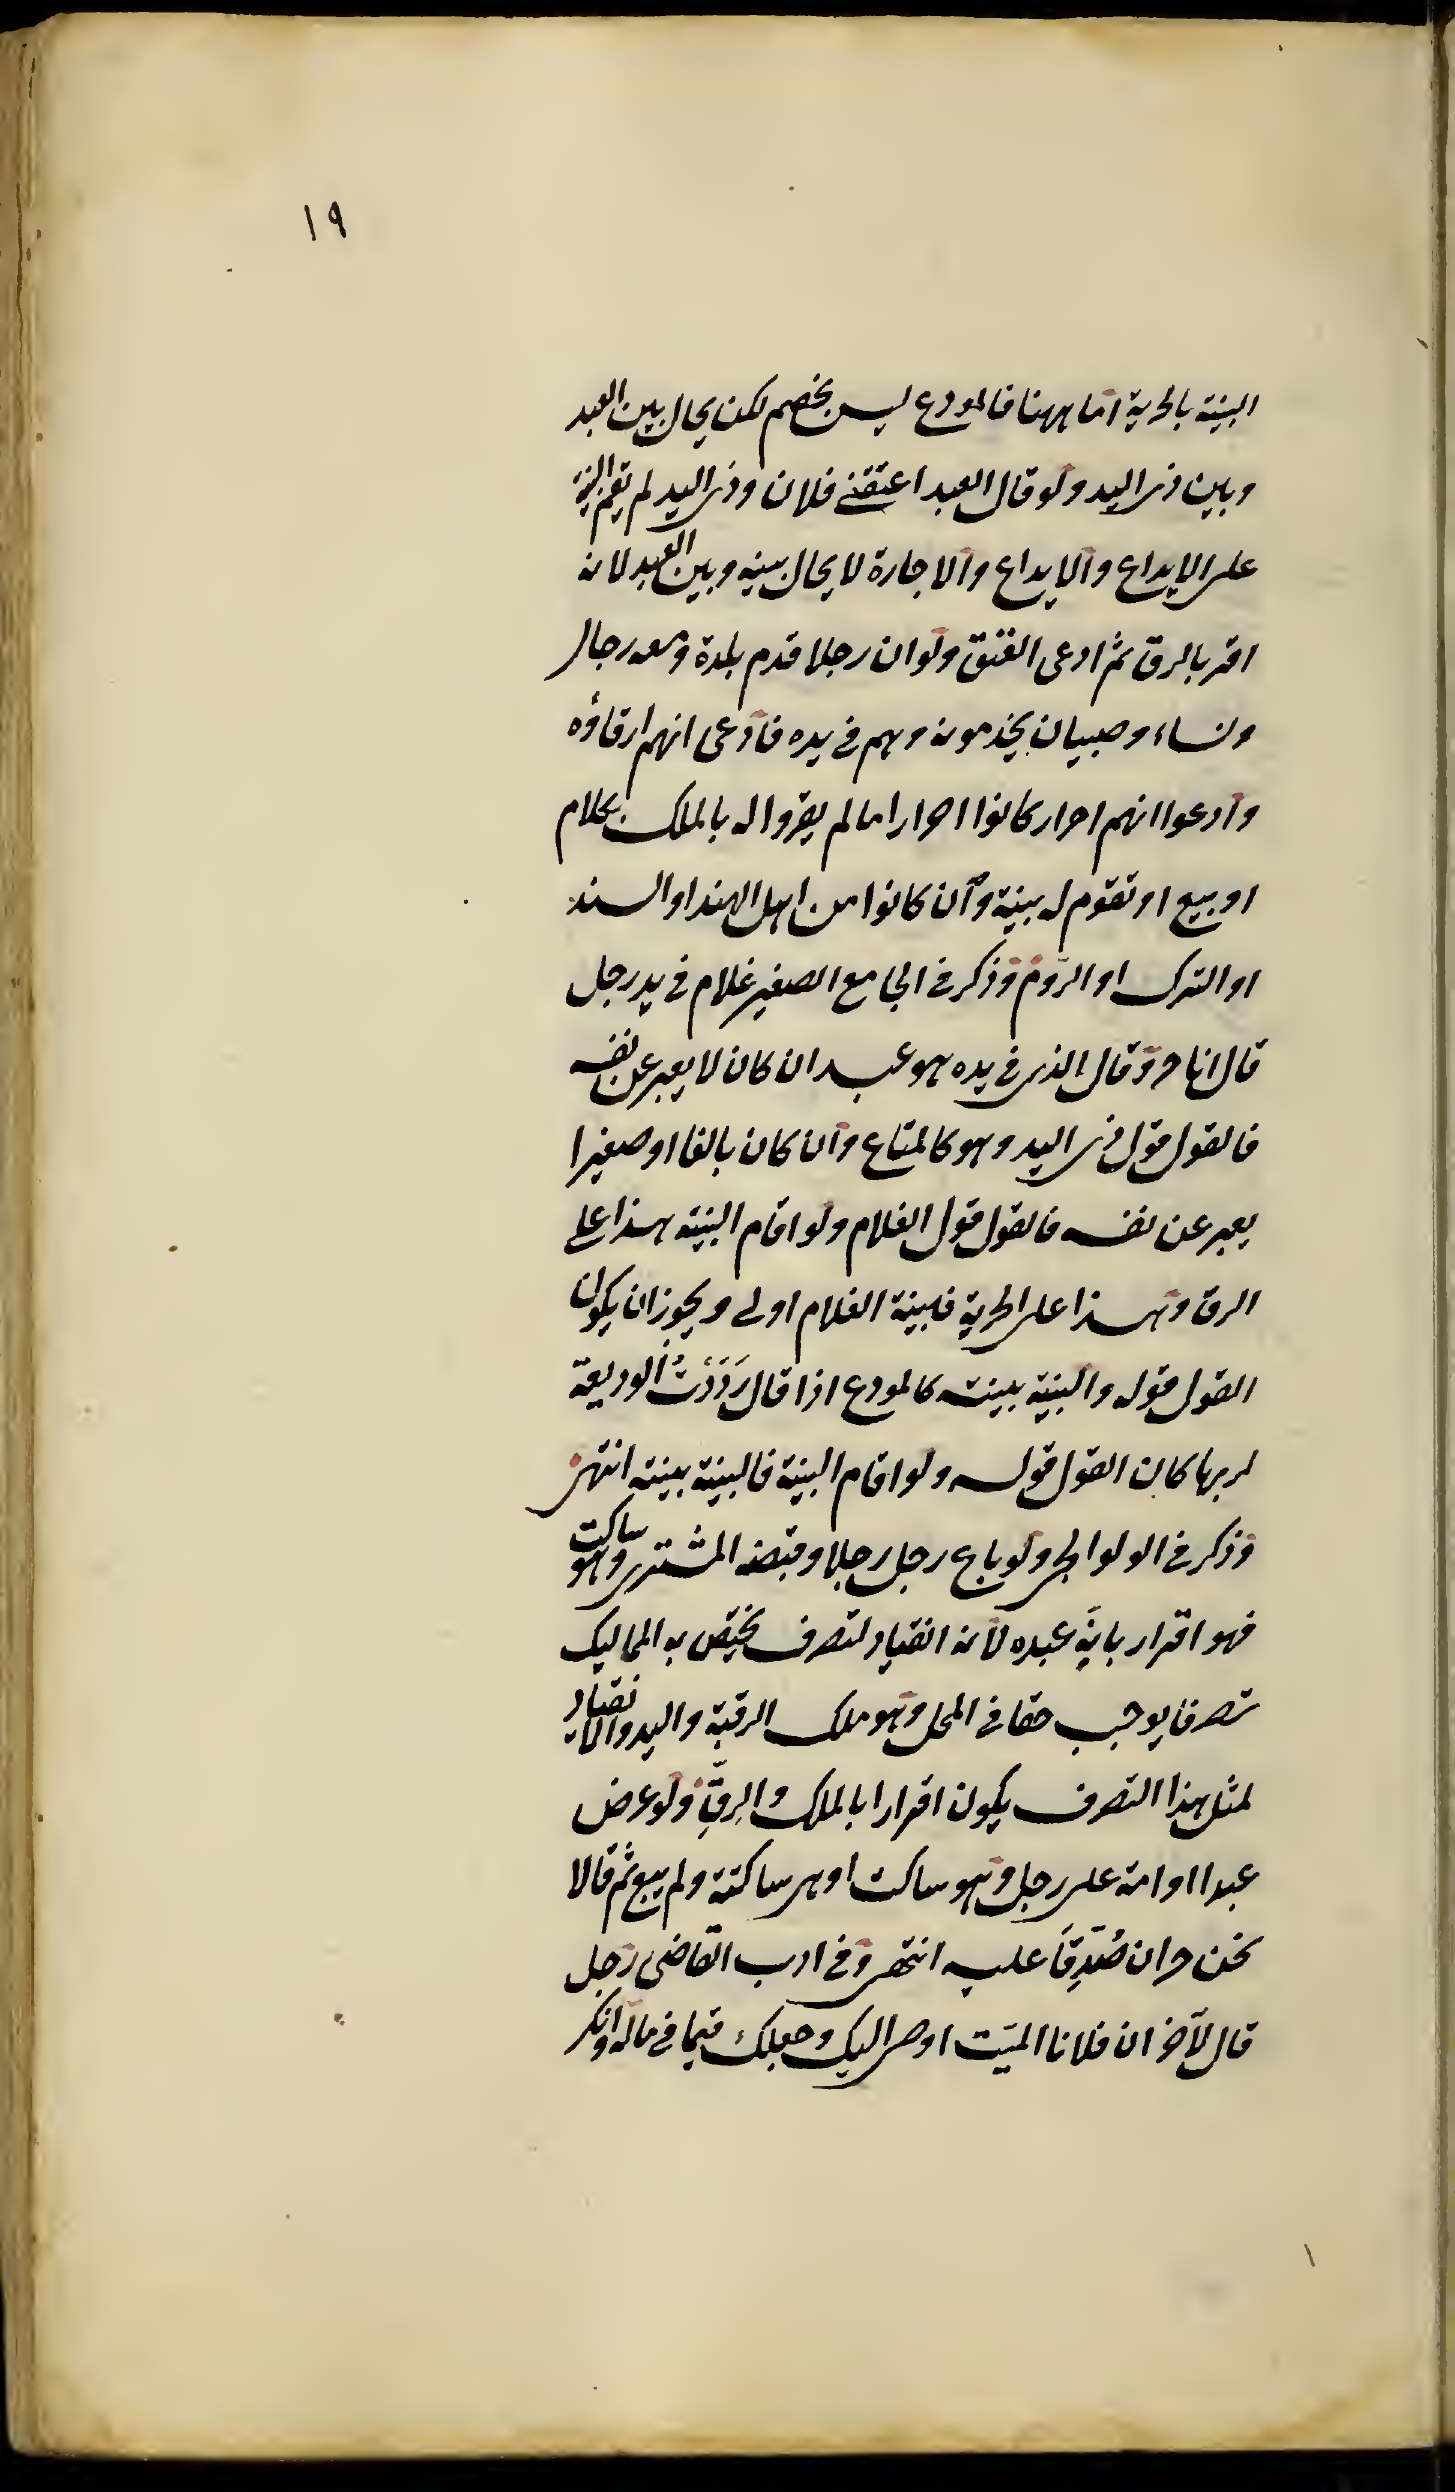 ١٩
البينة بالحرية اما ههنا فالمودع ليس بخصم لكن يحال بين العبد
وبين ذى اليد ولو قال العبد اعتقنى فلان وذى اليد لم يقم البينة
على الايداع والايداع والاجارة لا يحال بينه وبين العبد لانه
اقر بالرق ثم ادعى العتق ولو ان رجلا قدم بلدة ومعه رجال
ونساء وصبيان يخدمونه وهم فى يده فادعى انهم ارقاؤه
وادعوا انهم احرار كانوا احرارا ما لم يقروا له بالملك بكلام
او ببيع او تقوم له بينة وان كانوا من اهل الهند او السند
او الترك او الروم وذكر فى الجامع الصغير غلام فى يد رجل
قال انا حر وقال الذى فى يده هو عبد ان كان لا يعبر عن نفسه
فالقول قول ذى اليد وهو كالمتاع وان كان بالغا او صغيرا
يعبر عن نفسه فالقول قول الغلام ولو اقام البينة هذا على
الرق وهذا على الحرية فبينة الغلام اولى ويجوز ان يكون
القول قوله والبينة بينته كالمودع اذا قال رَدَدْتُ الوديعة
لربها كان القول قوله ولو اقام البينة فالبينة بينته انتهى
وذكر فى الولوالجى ولو باع رجل رجلا وقبضه المشترى وهو ساكت
فهو اقرار بانه عبده لانه انقياد لتصرف يختص به المماليك
تصرفا يوجب حقا فى المحل وهو ملك الرقبة واليد والانقياد
لمثل هذا التصرف يكون اقرارا بالملك والرِقِّ ولو عرض
عبدا او امة على رجل وهو ساكت او هى ساكتة ولم يبع ثم قالا
نحن حران صُدِّقَا عليه انتهى وفى ادب القاضى رجل
قال لآخر ان فلانا الميت اوصى اليك وجعلك قيما فى ماله وانكر